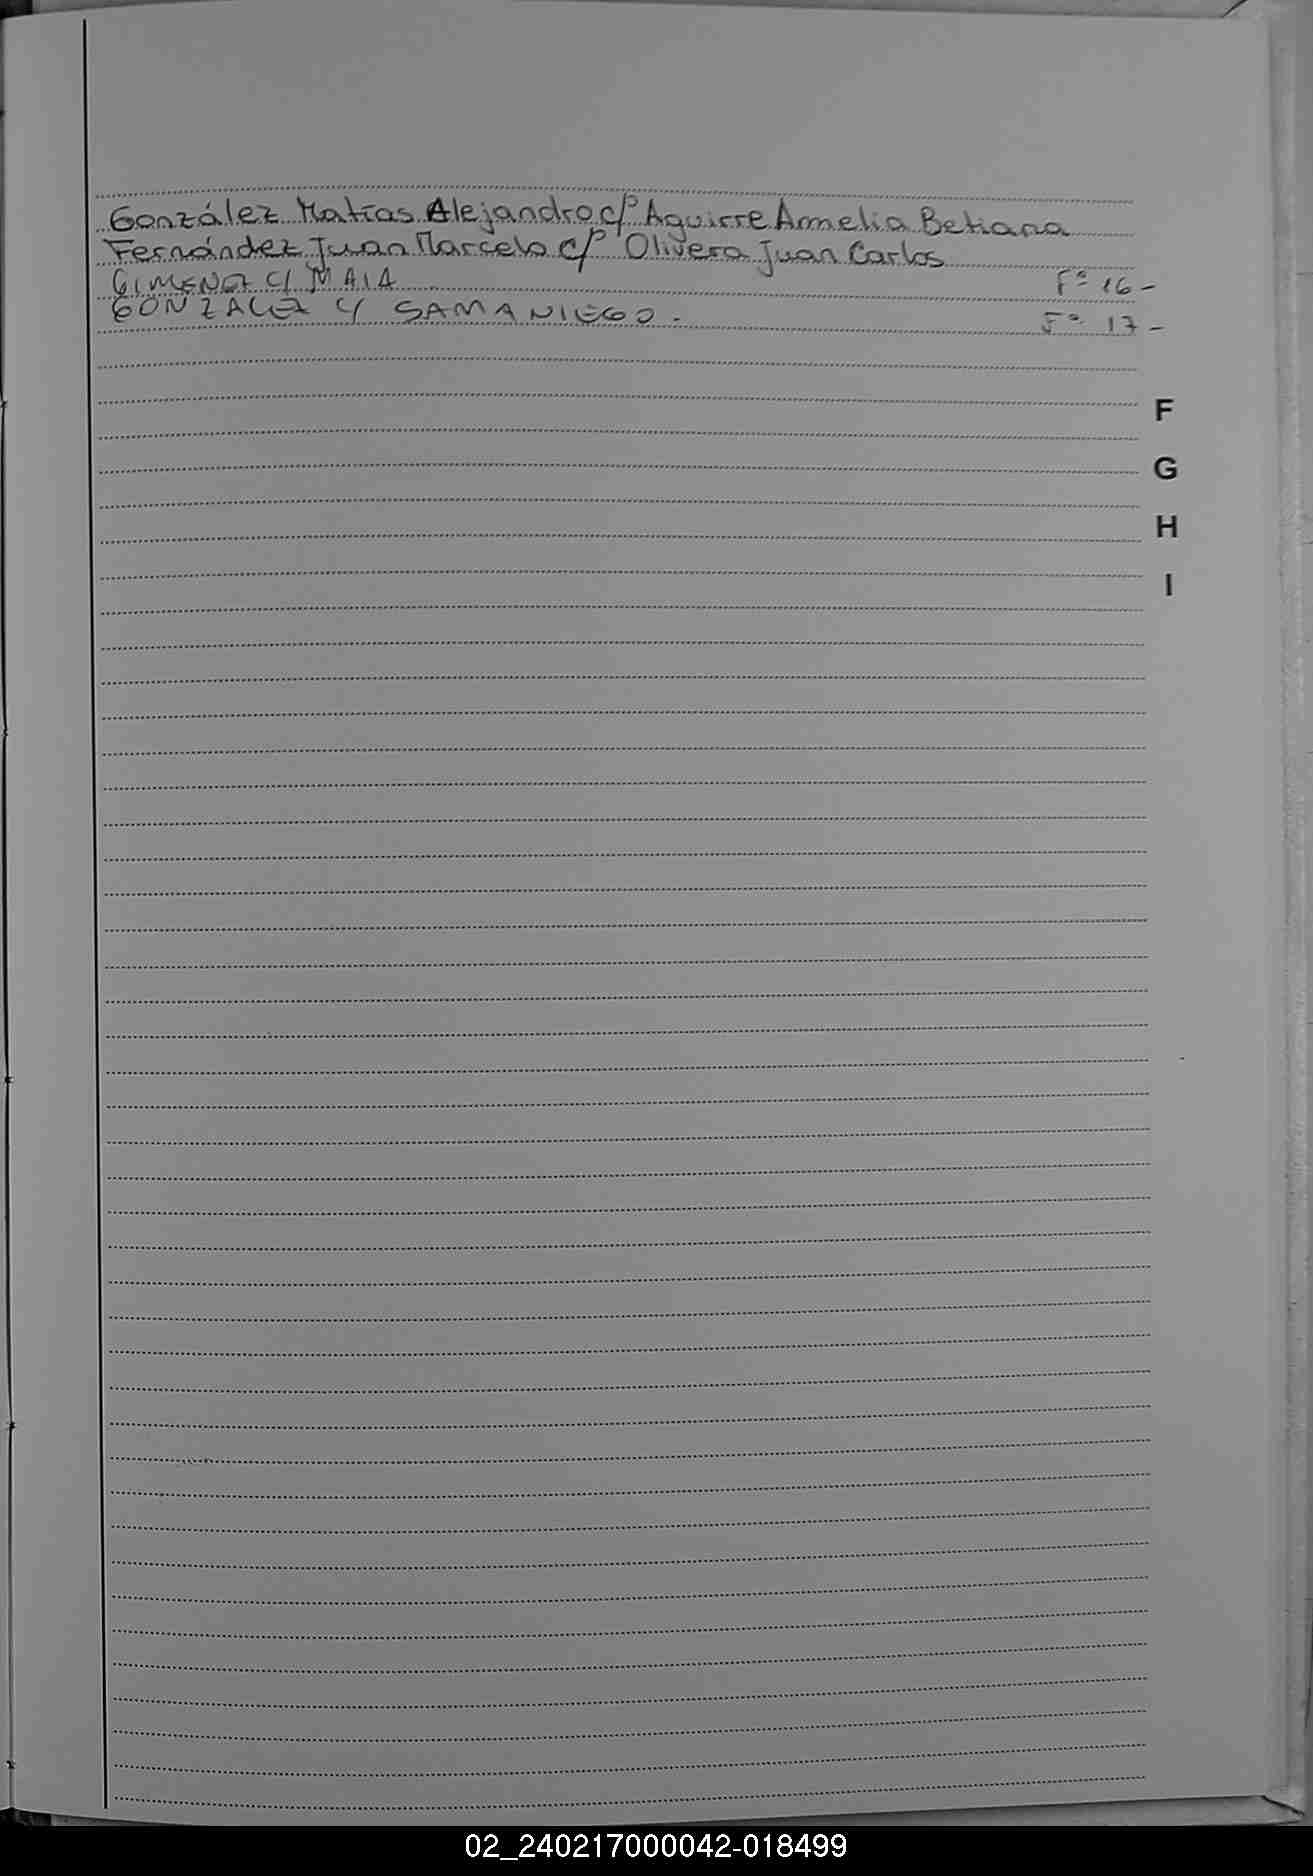 González Matías Alejandro c/p Aguirre Armelia Betiana
Fernández Juan Marcelo c/p Olivera Juan Carlos
GIMENEZ C/ MAIA Fº 16-
GONZALEZ C/ SAMANIEGO. Fº 17-
F
G
H
I
02_240217000042-018499